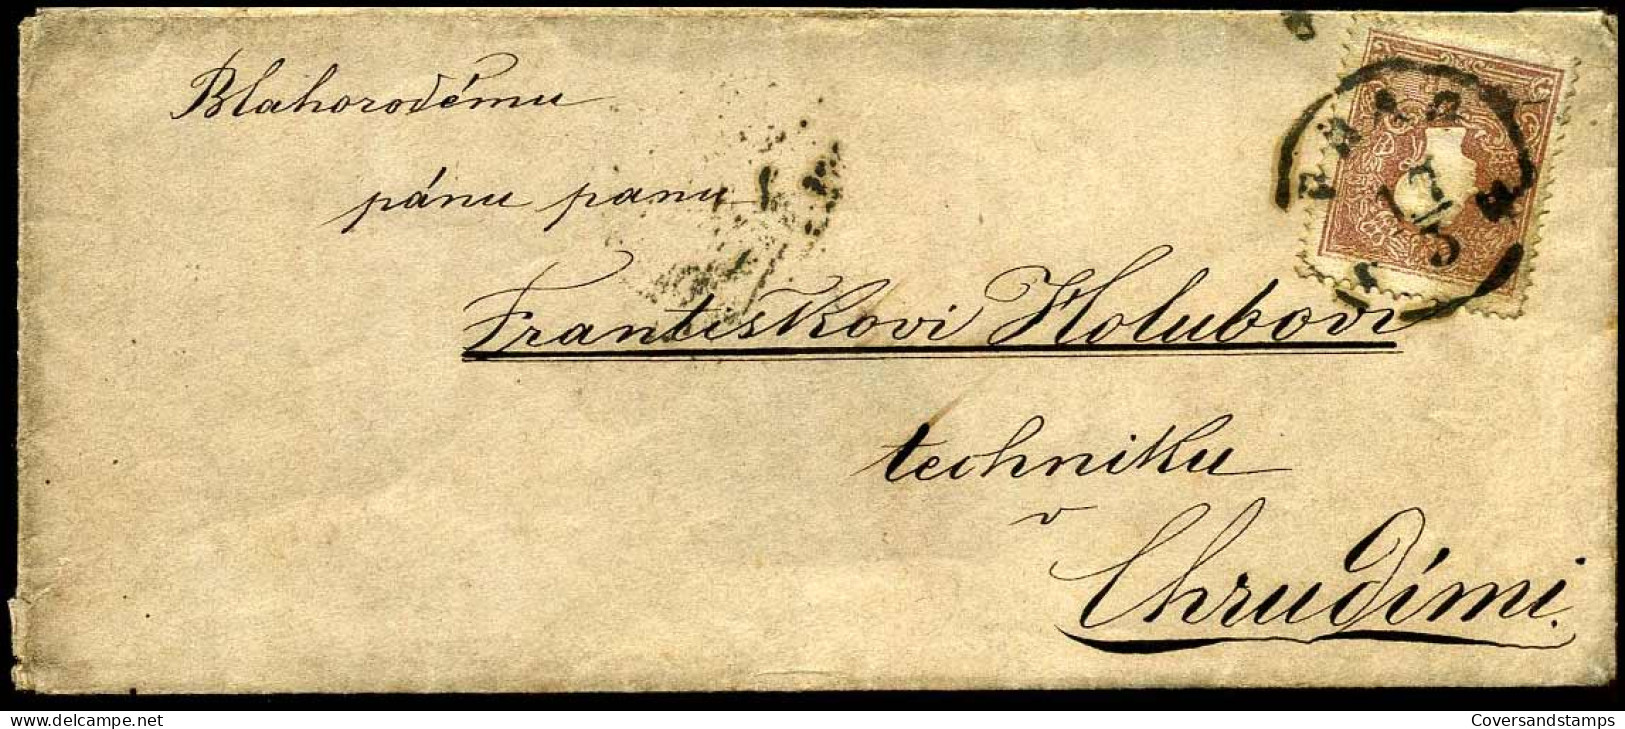 Blahorodému
pánu panu
Frantiskovi Holubovi
techniku
v
Chrudími.
PRAG
17/5
www.delcampe.net
Coversandstamps